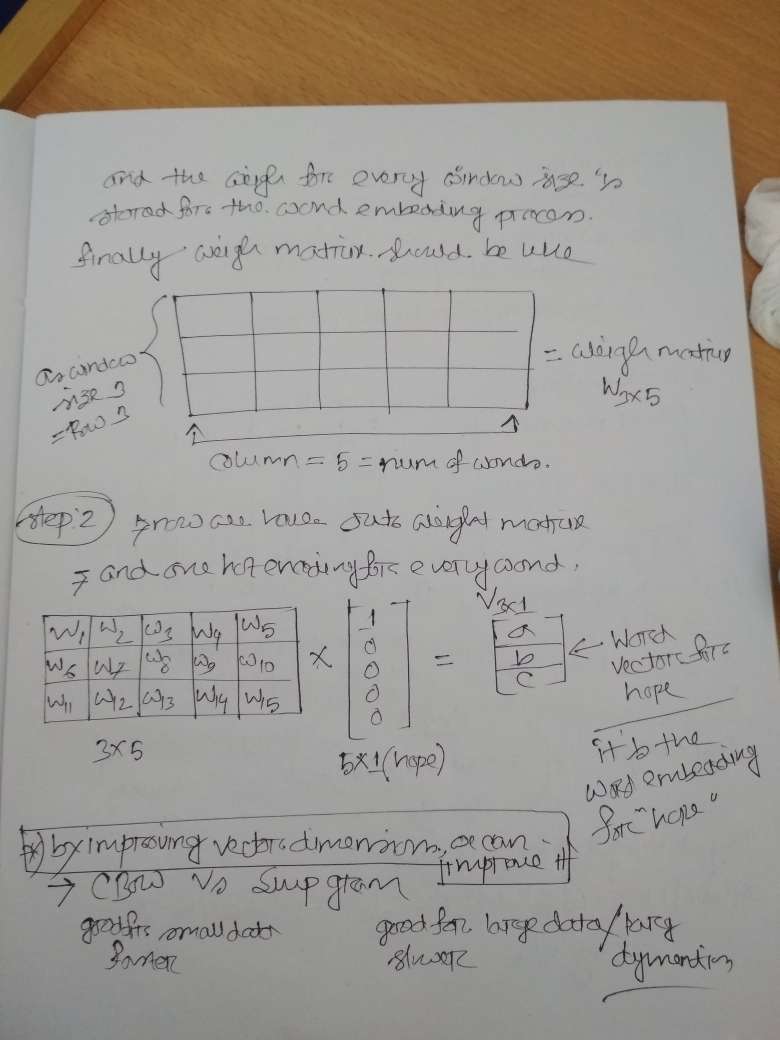 and the weigh for every window size is
stored for the word embedding process.
finally weigh matrix should be like
as window
size 3
= Row 3
= weigh matrix
W3x5
column = 5 = num of words.
step: 2
now we have our weight matrix
and one hot encoding for every word.
W1 W2 W3 W4 W5
W6 W7 W8 W9 W10
W11 W12 W13 W14 W15
3x5
x
1
0
0
0
0
5x1 (hope)
=
V3x1
a
b
c
← Word
vector for
hope
it's the
word embedding
for "hope"
*) by improving vector dimensions, we can
improve it
→ CBOW Vs Skip gram
good for small data
faster
good for large data/
slower